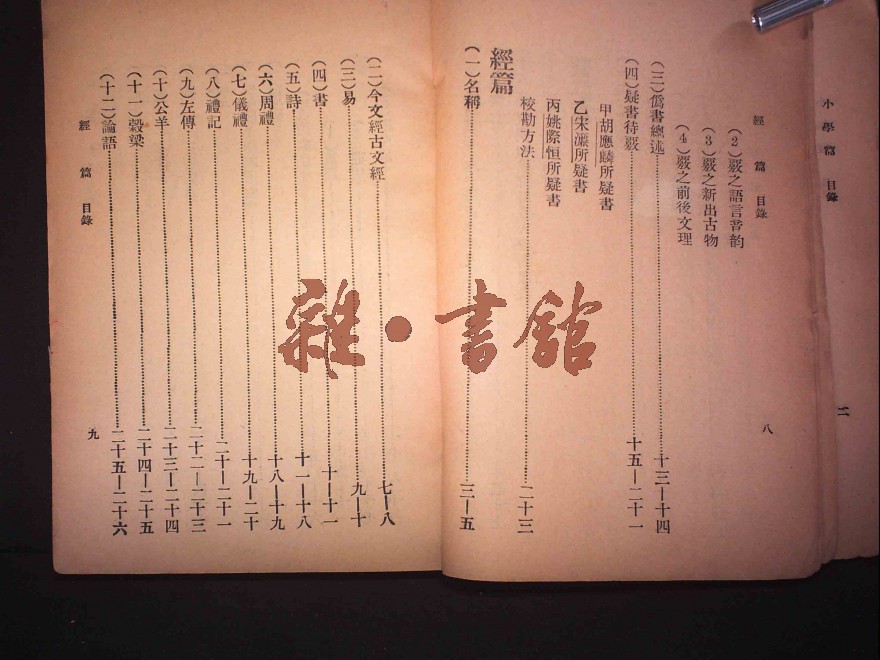 小學篇 目錄
二
經篇 目錄
八
(2)覈之語言音韵
(3)覈之新出古物
(4)覈之前後文理
(三)僞書總述 十三—十四
(四)疑書待覈 十五—二十一
甲胡應麟所疑書
乙宋濂所疑書
丙姚際恒所疑書
校勘方法 二十三
經篇
(一)名稱 三—五
(二)今文經古文經 七—八
(三)易 九—十
(四)書 十—十一
(五)詩 十一—十八
(六)周禮 十八—十九
(七)儀禮 十九—二十
(八)禮記 二十—二十一
(九)左傳 二十二—二十三
(十)公羊 二十三—二十四
(十一)穀梁 二十四—二十五
(十二)論語 二十五—二十六
經篇 目錄
九
雜·書館